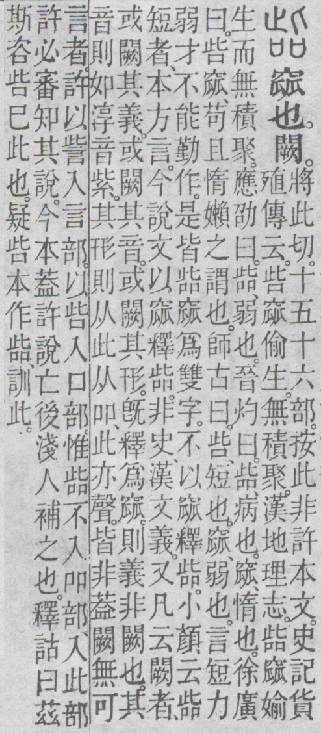 啙 窳也。闕。
將此切。十五十六部。按此非許本文。史記貨
殖傳云。呰窳偷生。無積聚。漢地理志。啙窳媮
生而無積聚。應劭曰。啙、弱也。晉灼曰。啙、病也。窳、惰也。徐廣
曰。呰窳、苟且惰嬾之謂也。師古曰。呰、短也。窳、弱也。言短力
弱才不能勤作。是皆啙窳爲雙字。不以窳釋啙。小顏云啙
短者、本方言。今說文以窳釋啙。非史漢文義。又凡云闕者、
或闕其義。或闕其音。或闕其形。旣釋爲窳。則義非闕也。其
音則如淳音紫。其形則从此从吅、此亦聲。皆非葢闕。無可
言者。許以訾入言部。以呰入口部。惟啙不入吅部。入此部
許必審知其說。今本葢許說亡後淺人補之也。釋詁曰。茲
斯咨呰巳此也。疑呰本作啙。訓此。